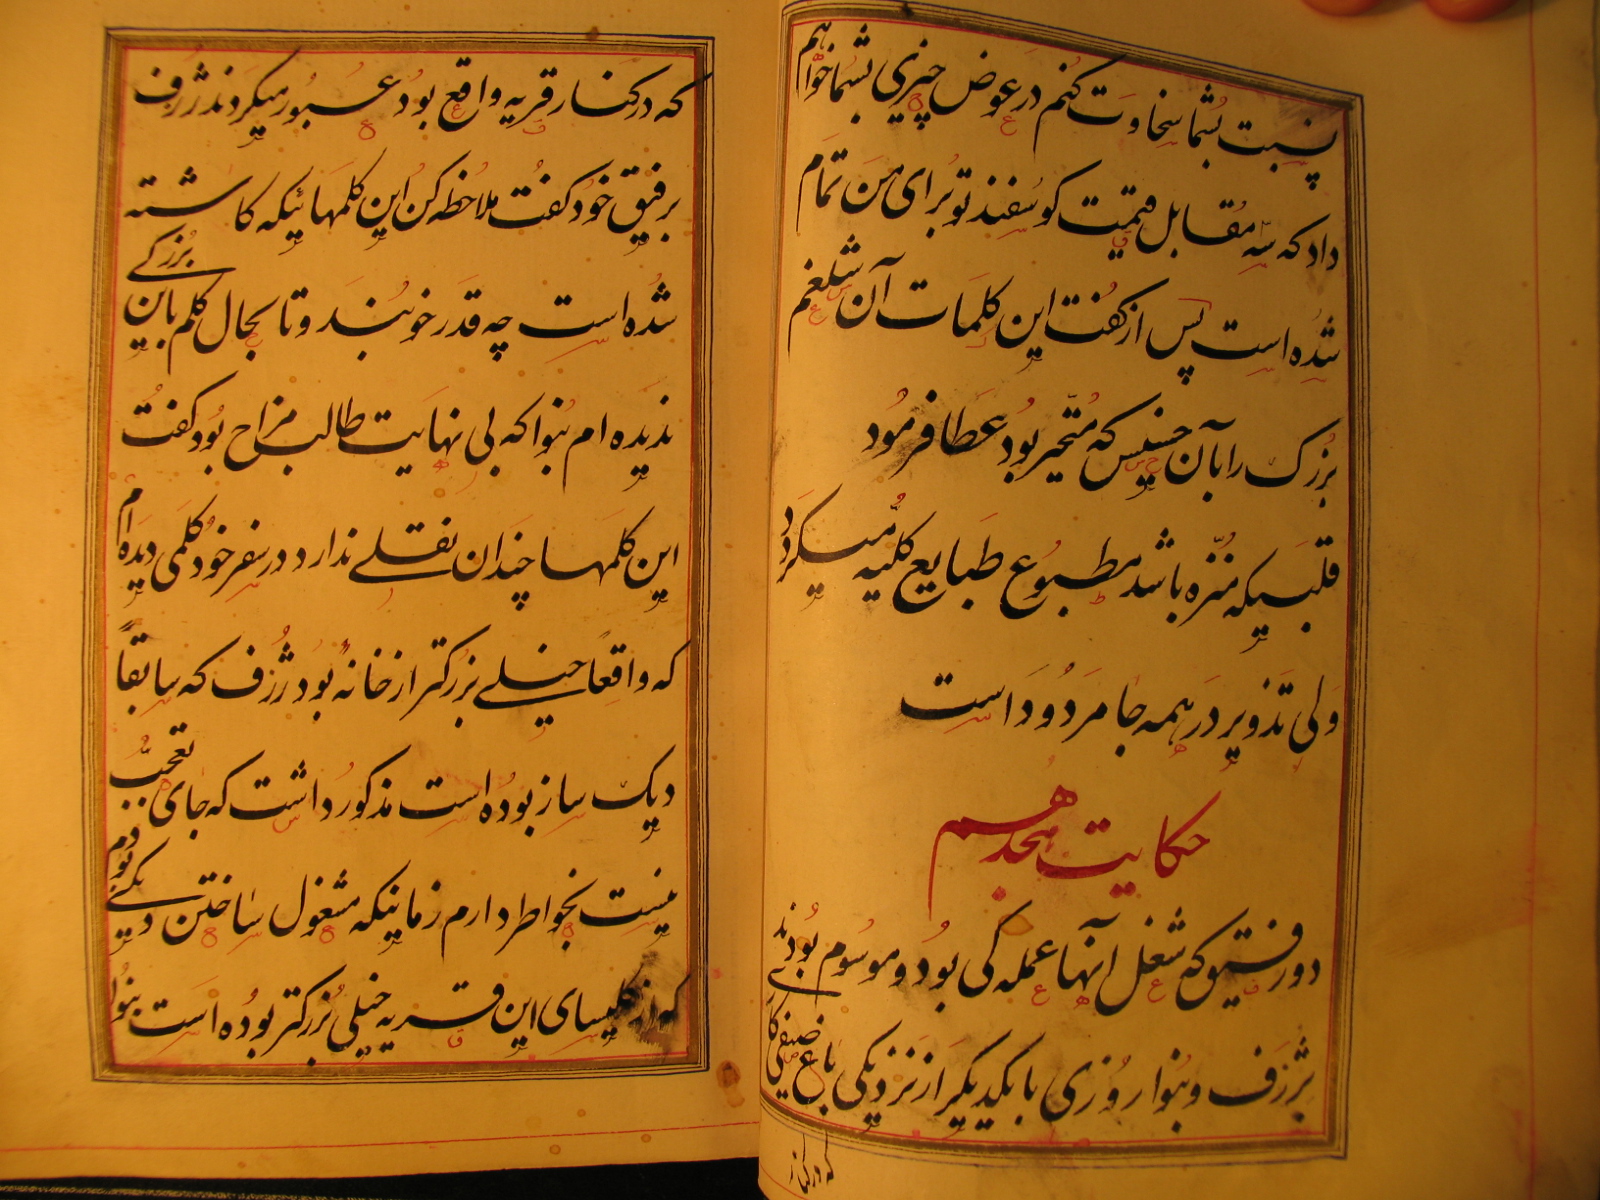 نسبت بشما سخاوت کنم در عوض چیزی بشما خواهم
داد که سه مقابل قیمت کوسفند تو برای من تمام
شده است پس از گفت این کلمات آن شلغم
بزرک را بآن خسیس که متحیر بود عطا فرمود
قلبیکه منزه باشد مطبوع طبایع کلیه میکردد
ولی تذویر در همه جا مردود است
حکایت هجدهم
دو رفیق که شغل آنها عمله کی بود و موسوم بودند
بژزف و بنوا روزی با یکدیکر از نزدیکی باغ
که در کنار
که در کنار قریه واقع بود عبور میکردند ژزف
برفیق خود کفت ملاحظه کن این کلمهائیکه کاشته
شده است چه قدر خوبند و تا بحال کلم باین بزرکی
ندیده ام بنوا که بی نهایت طالب مزاح بود کفت
این کلمها چندان نقلی ندارد در سفر خود کلمی دیده ام
که واقعاً خیلی بزرکتر از خانه بود ژزف که سابقاً
دیک ساز بوده است مذکور داشت که جای تعجب
نیست بخواطر دارم زمانیکه مشغول ساختن دیکی بودم
که از کلیسای این قریه خیلی بزرکتر بوده است بنوا